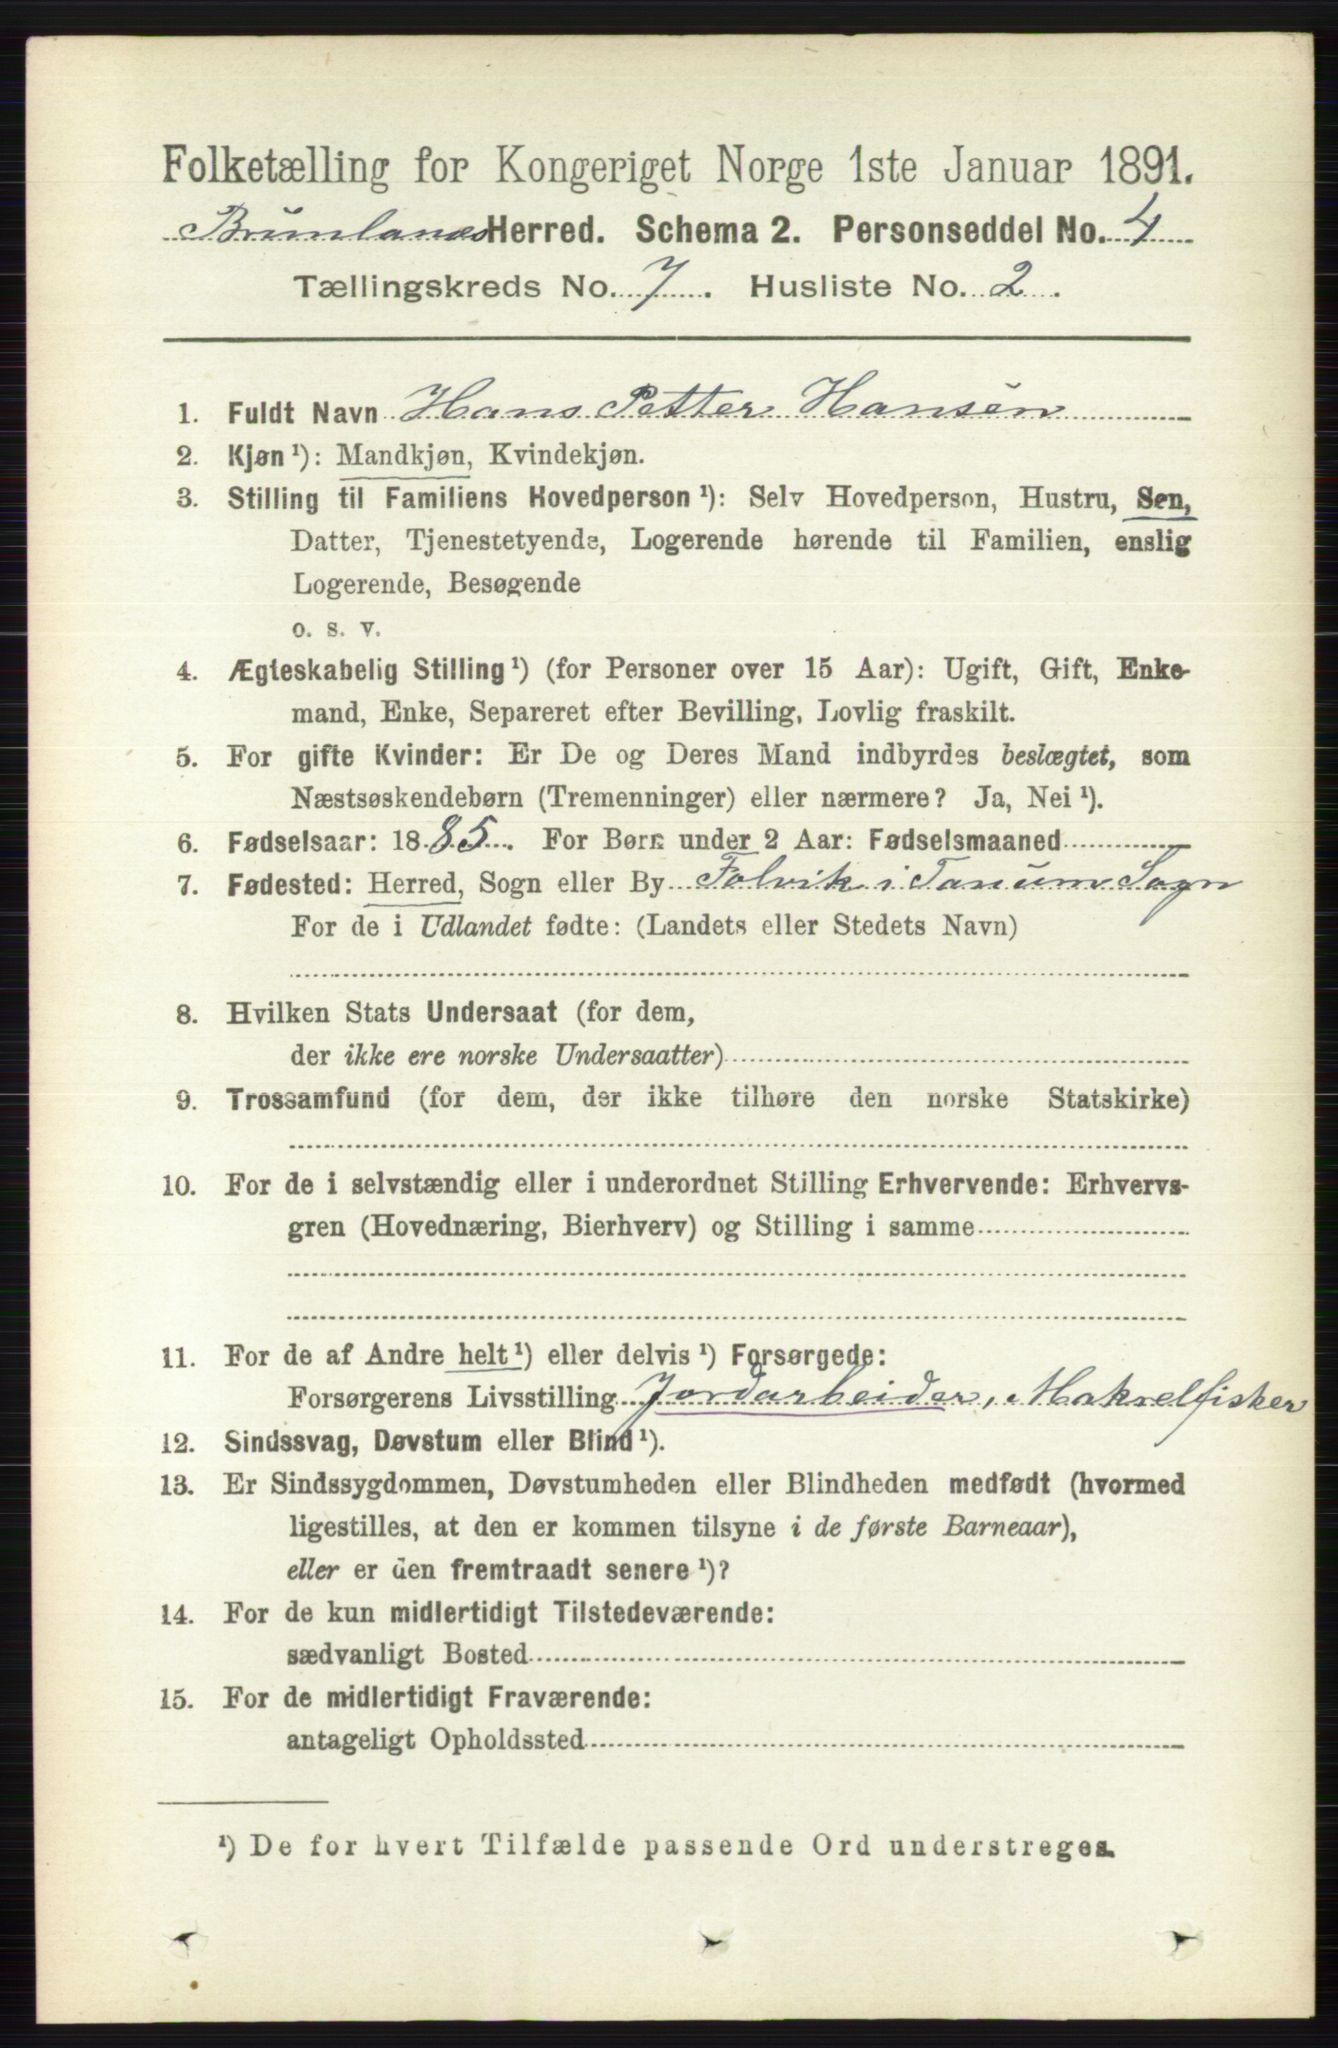 Folketælling for Kongeriget Norge 1ste Januar 1891.
Brunlanes Herred. Schema 2. Personseddel No. 4
Tællingskreds No. 7. Husliste No. 2.
1. Fuldt Navn Hans Petter Hansen
2. Kjøn¹): Mandkjøn, Kvindekjøn.
3. Stilling til Familiens Hovedperson¹): Selv Hovedperson, Hustru, Søn,
Datter, Tjenestetyende, Logerende hørende til Familien, enslig
Logerende, Besøgende
o. s. v.
4. Ægteskabelig Stilling¹) (for Personer over 15 Aar): Ugift, Gift, Enke-
mand, Enke, Separeret efter Bevilling, Lovlig fraskilt.
5. For gifte Kvinder: Er De og Deres Mand indbyrdes beslægtet, som
Næstsøskendebørn (Tremenninger) eller nærmere? Ja, Nei¹).
6. Fødselsaar: 1885. For Børn under 2 Aar: Fødselsmaaned
7. Fødested: Herred, Sogn eller By Folvik i Tanum Sogn
For de i Udlandet fødte: (Landets eller Stedets Navn)
8. Hvilken Stats Undersaat (for dem,
der ikke ere norske Undersaatter)
9. Trossamfund (for dem, der ikke tilhøre den norske Statskirke)
10. For de i selvstændig eller i underordnet Stilling Erhvervende: Erhvervs-
gren (Hovednæring, Bierhverv) og Stilling i samme
11. For de af Andre helt¹) eller delvis¹) Forsørgede:
Forsørgerens Livsstilling Jordarbeider, Makrelfisker
12. Sindssvag, Døvstum eller Blind¹).
13. Er Sindssygdommen, Døvstumheden eller Blindheden medfødt (hvormed
ligestilles, at den er kommen tilsyne i de første Barneaar),
eller er den fremtraadt senere¹)?
14. For de kun midlertidigt Tilstedeværende:
sædvanligt Bosted
15. For de midlertidigt Fraværende:
antageligt Opholdssted
¹) De for hvert Tilfælde passende Ord understreges.